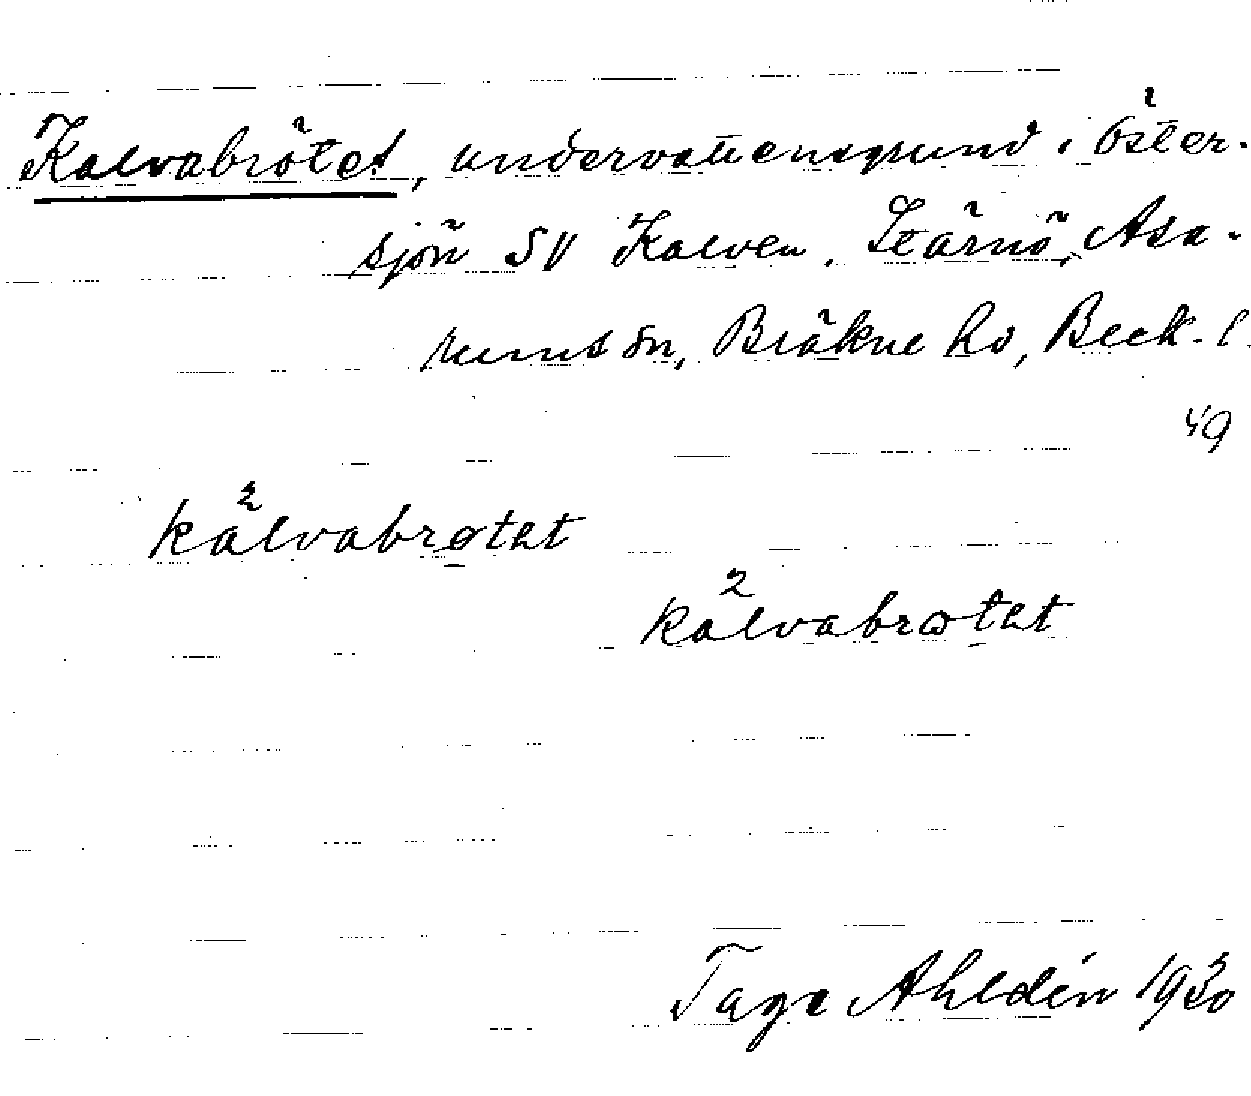 Kalvabrötet, undervattensgrund i Öster-
sjön SV Kalven, Stärnö, Asa-
rums sn, Bräkne hd, Beck. l.
49
kalvabrøtet
kalvabrøtet
Tage Ahldén 1930